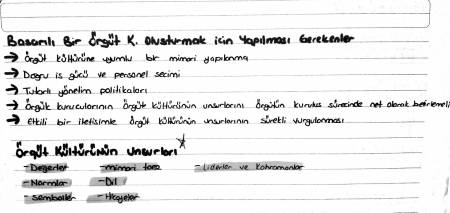 Başarılı Bir Örgüt K. Oluşturmak için Yapılması Gerekenler
→ Örgüt kültürüne uyumlu bir mimari yapılanma
→ Doğru iş gücü ve personel seçimi
→ Tutarlı yönetim politikaları
→ Örgüt kurucularının örgüt kültürünün unsurlarını örgütün kuruluş sürecinde net olarak belirlemeli
→ Etkili bir iletişimle örgüt kültürünün unsurlarının sürekli vurgulanması
Örgüt Kültürünün Unsurları
- Değerler - mimari tarz - Liderler ve Kahramanlar
- Normlar - Dil
- Semboller - Hikayeler